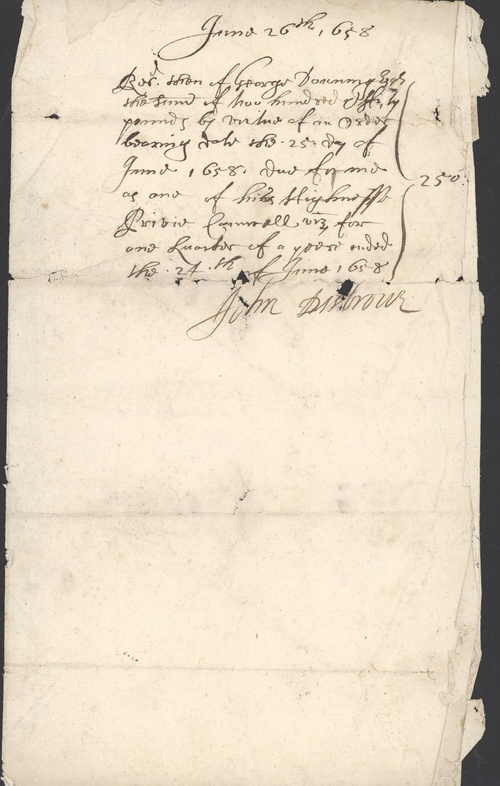 June 26th, 1658
Recd. then of George Downing Esqr
the sume of two hundred & fifty
pounds by virtue of an Order
bearing date the .25. dy of
June 1658. due for me
as one of his Highnesse
Privie Counsell viz for
one Quarter of a yeare ended
the .24.th of June 1658
250:
John Disbrowe